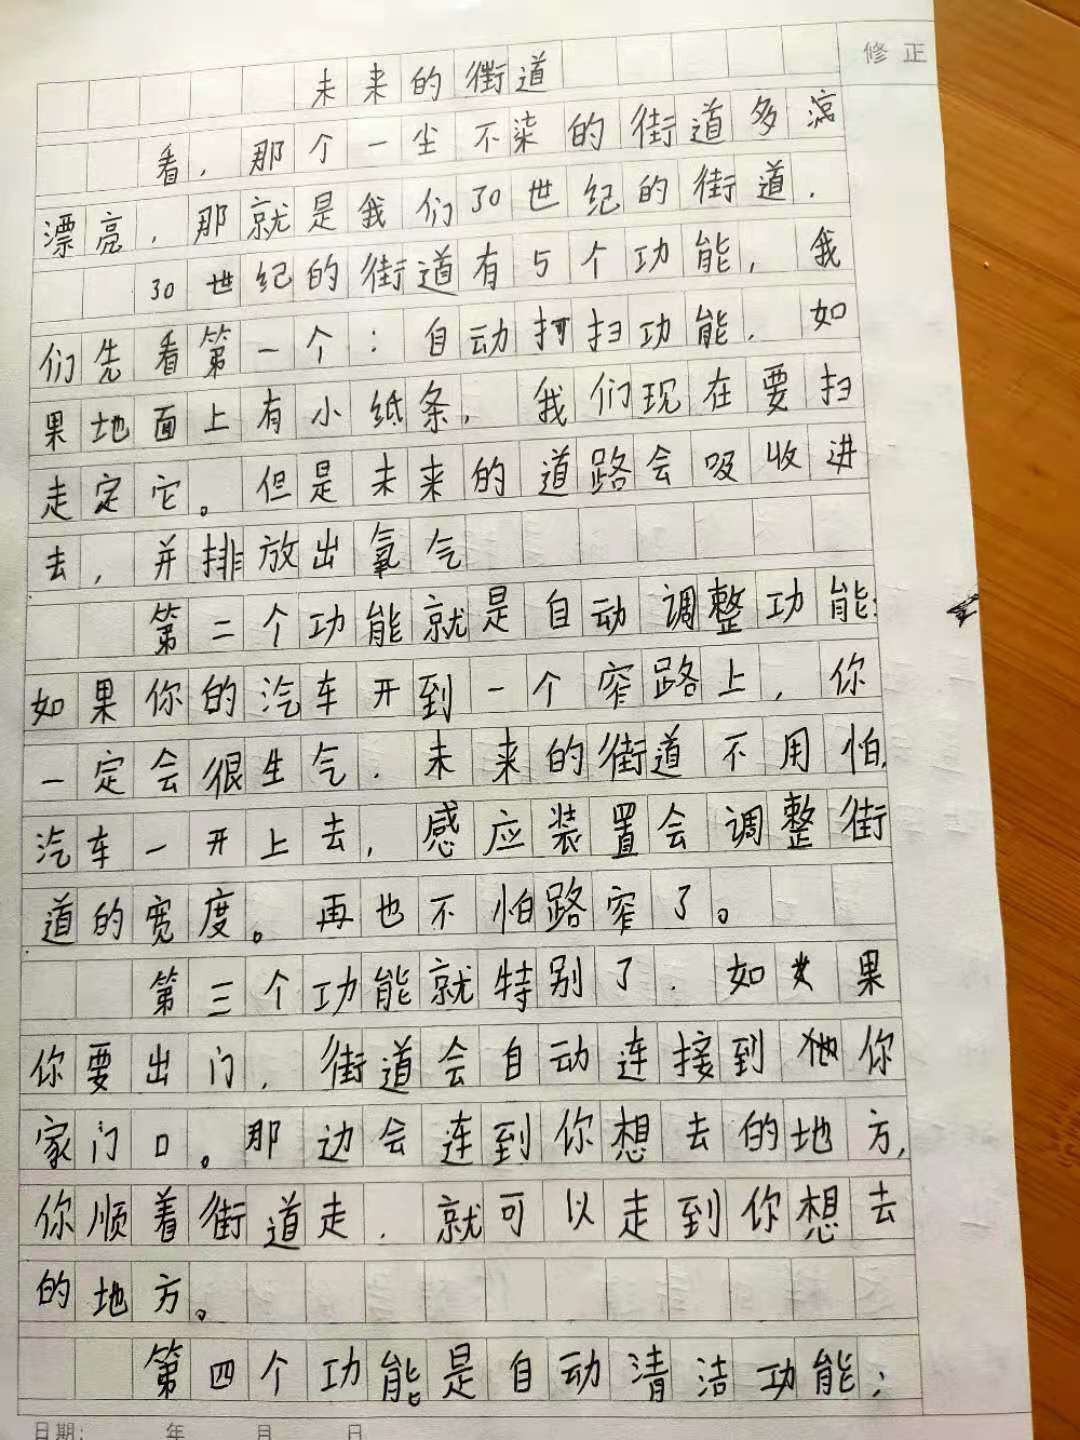 修正
未来的街道
看，那个一尘不染的街道多
漂亮，那就是我们30世纪的街道．
30世纪的街道有5个功能，我
们先看第一个：自动打扫功能．如
果地面上有小纸条，我们现在要扫
走定它。但是未来的道路会吸收进
去，并排放出氧气
第二个功能就是自动调整功能：
如果你的汽车开到一个窄路上，你
一定会很生气．未来的街道不用怕，
汽车一开上去，感应装置会调整街
道的宽度。再也不怕路窄了。
第三个功能就特别了．如果
你要出门，街道会自动连接到你
家门口。那边会连到你想去的地方，
你顺着街道走．就可以走到你想去
的地方。
第四个功能是自动清洁功能；
日期：　年　月　日